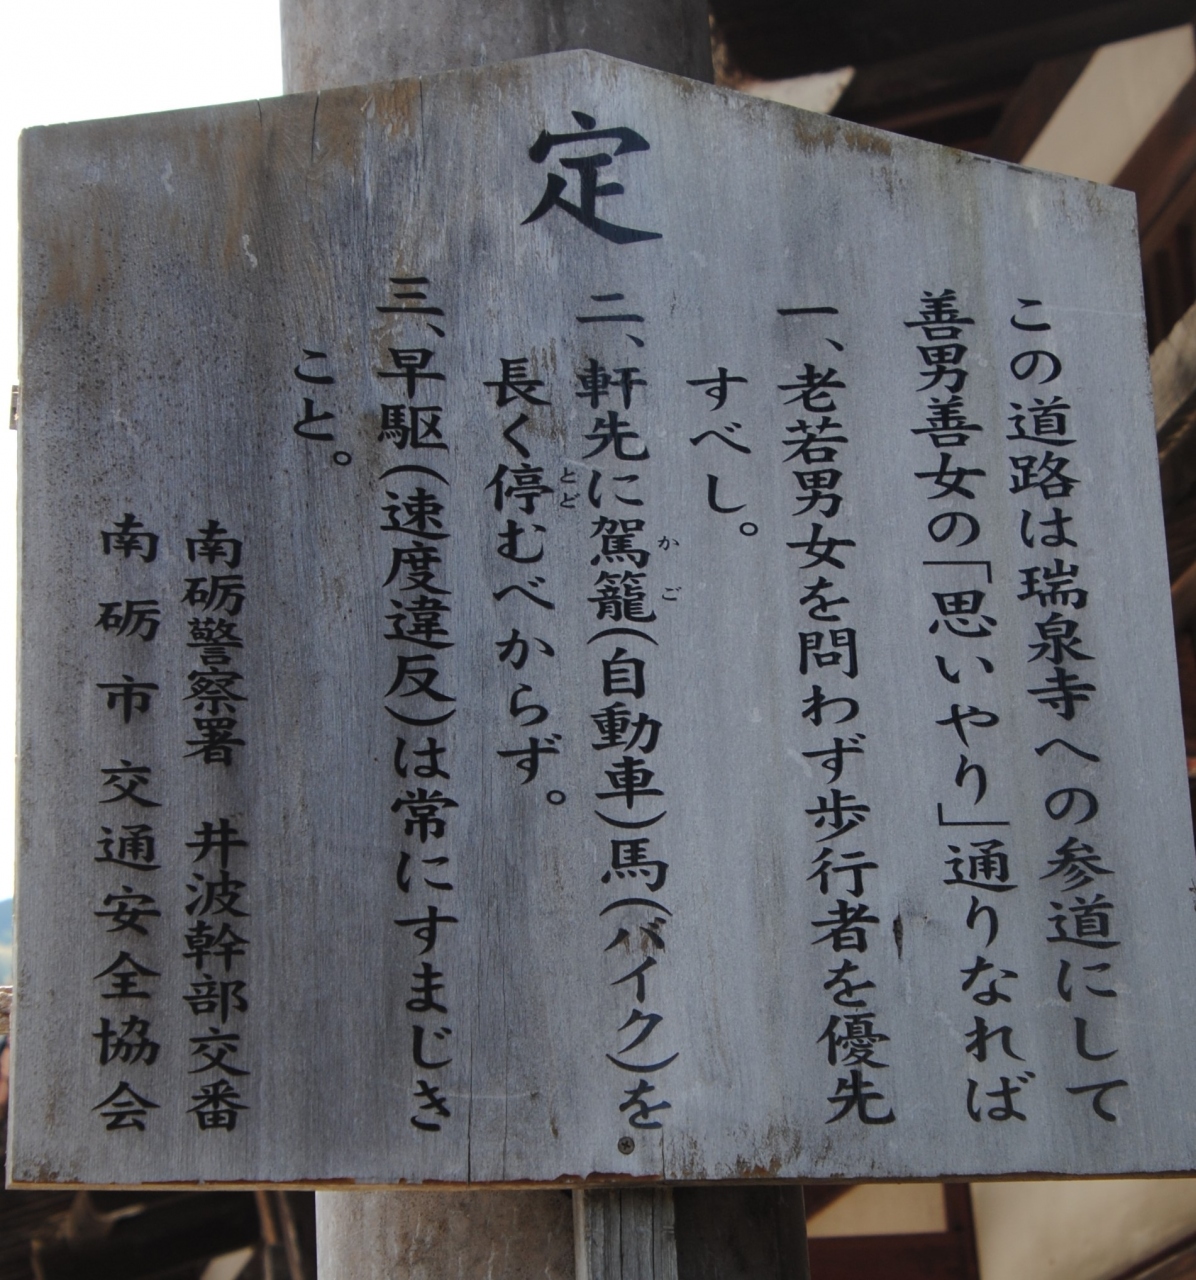 定
この道路は瑞泉寺への参道にして
善男善女の「思いやり」通りなれば
一、老若男女を問わず歩行者を優先
すべし。
二、軒先に駕籠(自動車)馬(バイク)を
かご
長く停むべからず。
とど
三、早駆(速度違反)は常にすまじき
こと。
南砺警察署 井波幹部交番
南砺市交通安全協会